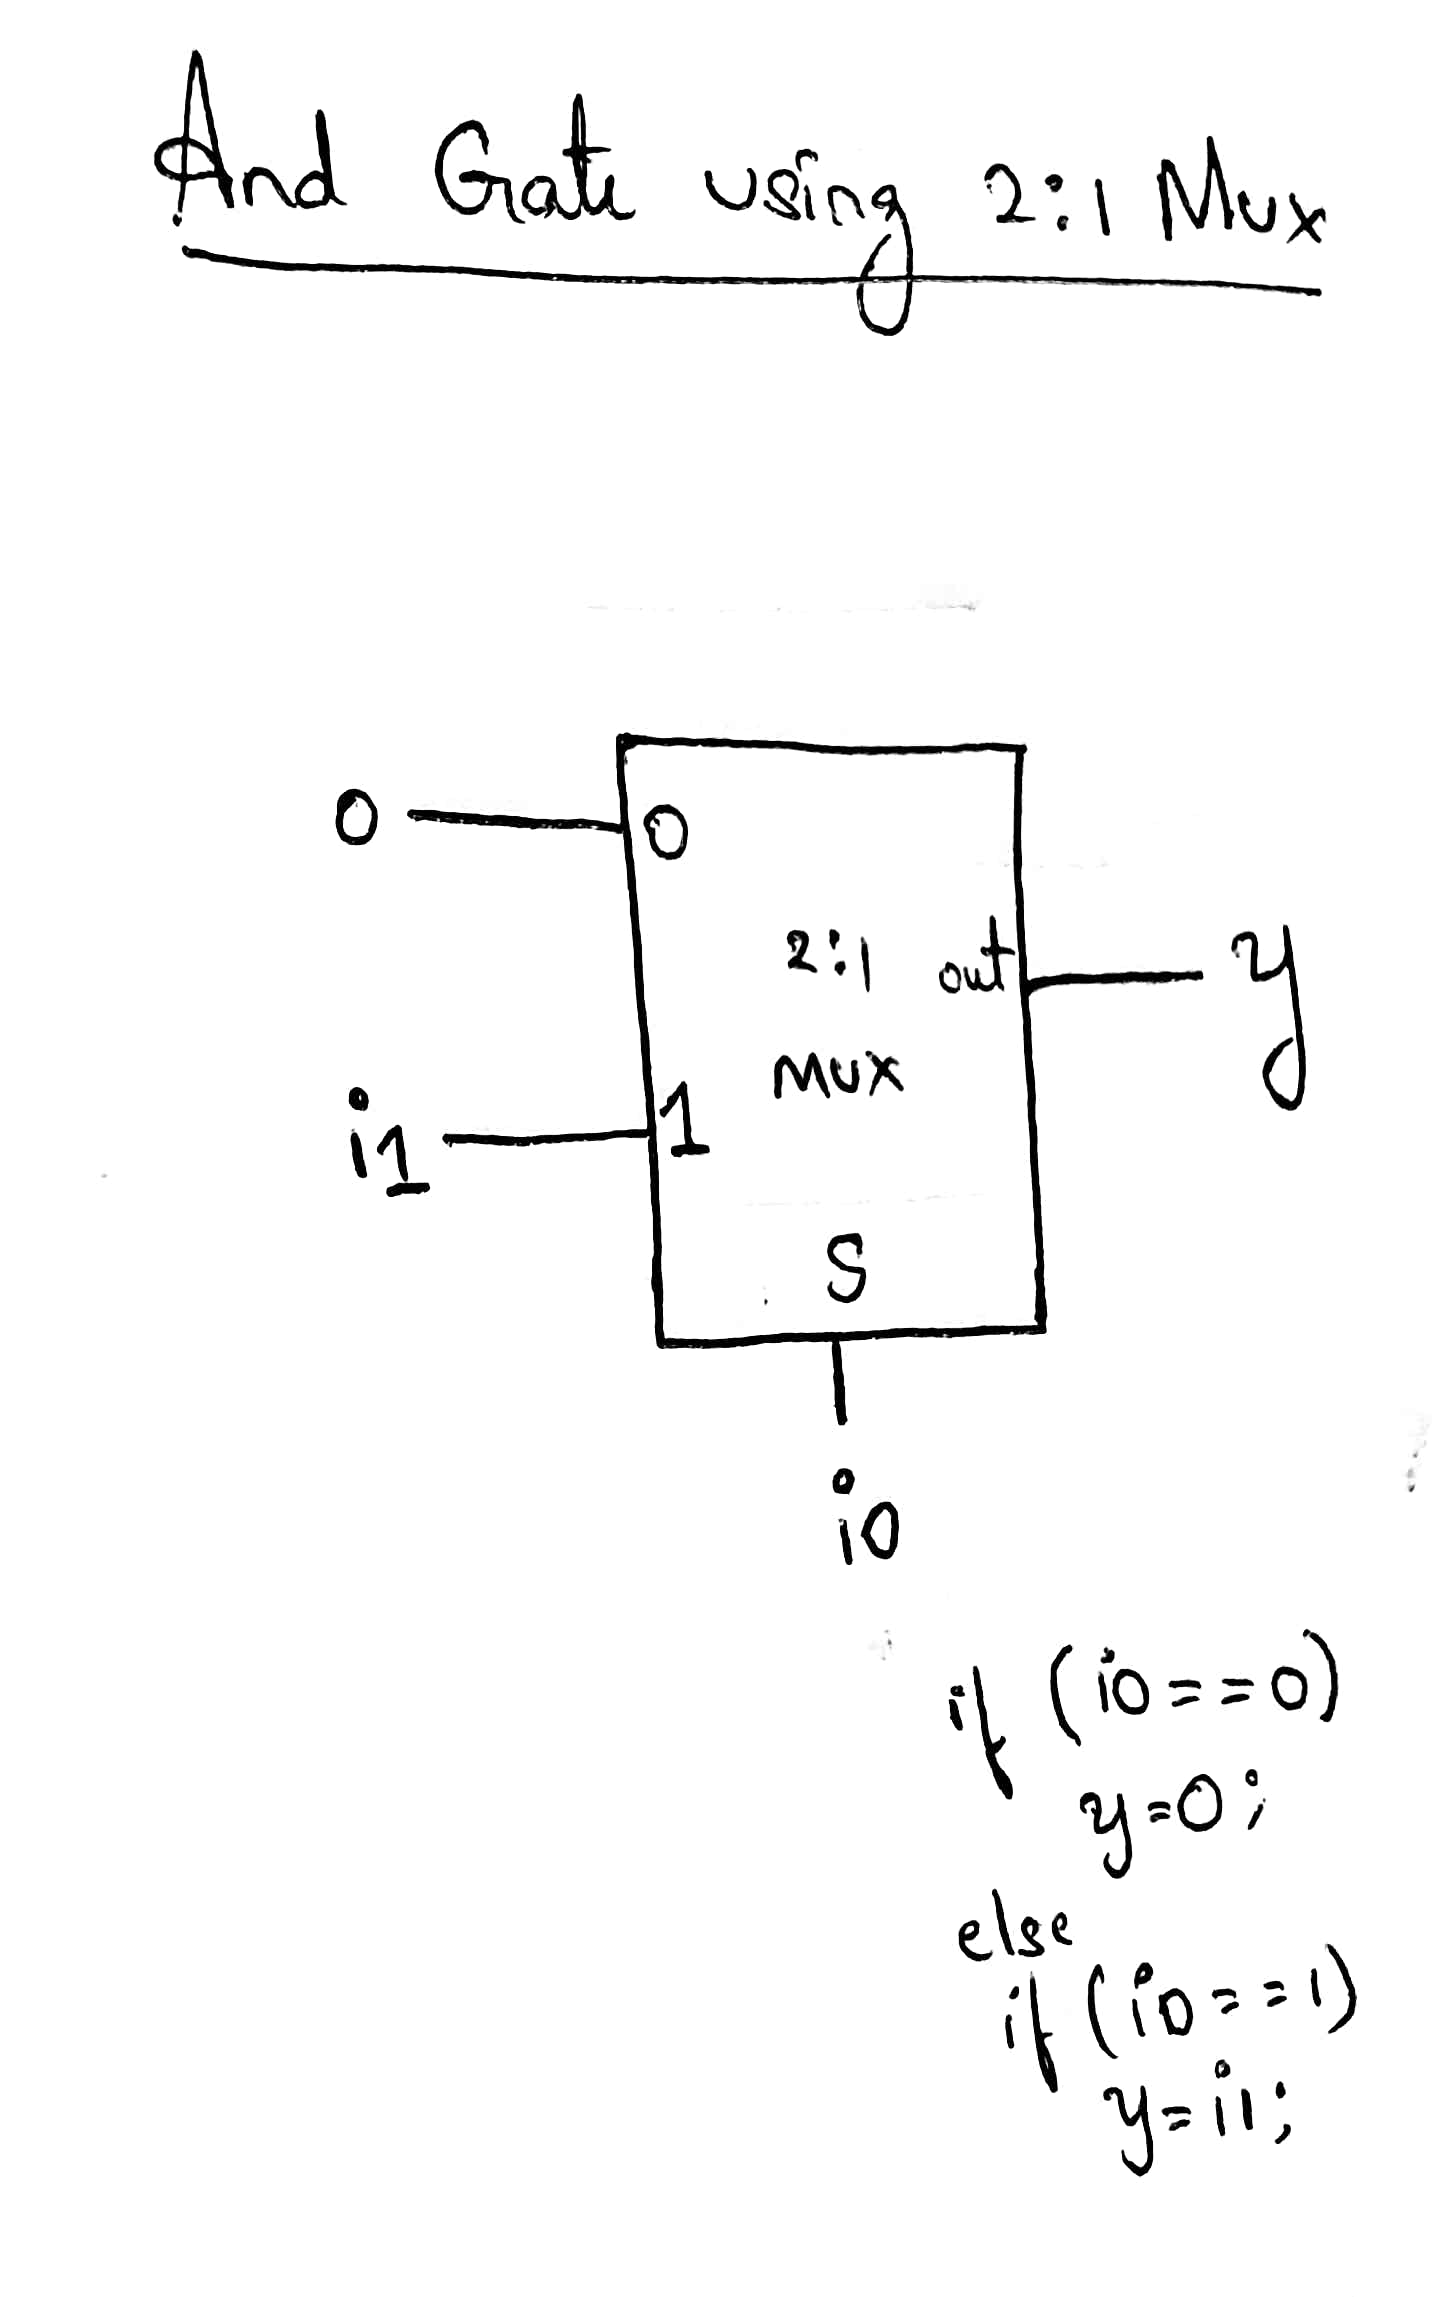 And Gate using 2:1 Mux
0
0
2:1
out
y
MUX
i1
1
S
i0
if (i0==0)
y=0;
else
if (i0==1)
y=i1;